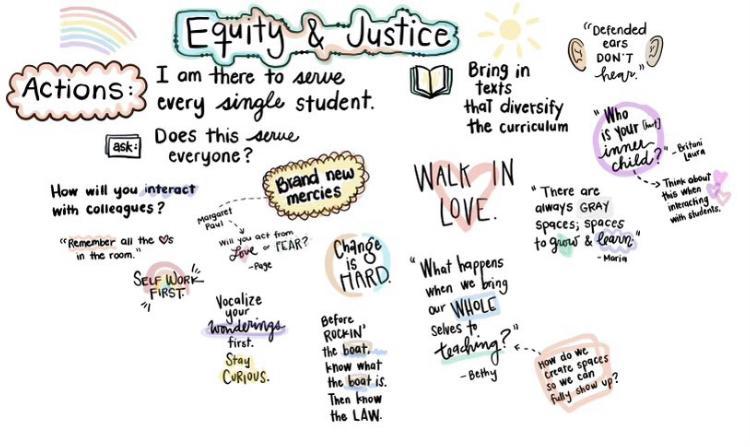 Equity & Justice
Actions:
I am there to serve
every single student.
ask:
Does this serve
everyone?
Bring in
texts
that diversify
the curriculum
"Defended
ears
DON'T
hear."
"Who
is your [hurt]
inner
child?"
- Britani
Laura
Think about
this when
interacting
with students.
How will you interact
with colleagues?
"Remember all the ♡s
in the room."
SELF WORK
FIRST.
Brand new
mercies
Margaret
Paul
Will you act from
Love or FEAR?
- Page
Vocalize
your
wonderings
first.
Stay
CURIOUS.
Change
is
HARD.
Before
ROCKIN'
the boat,
know what
the boat is.
Then know
the LAW.
WALK IN
LOVE.
"What happens
when we bring
our WHOLE
selves to
teaching?"
- Bethy
How do we
create spaces
so we can
fully show up?
"There are
always GRAY
spaces; spaces
to grow & learn."
- Maria